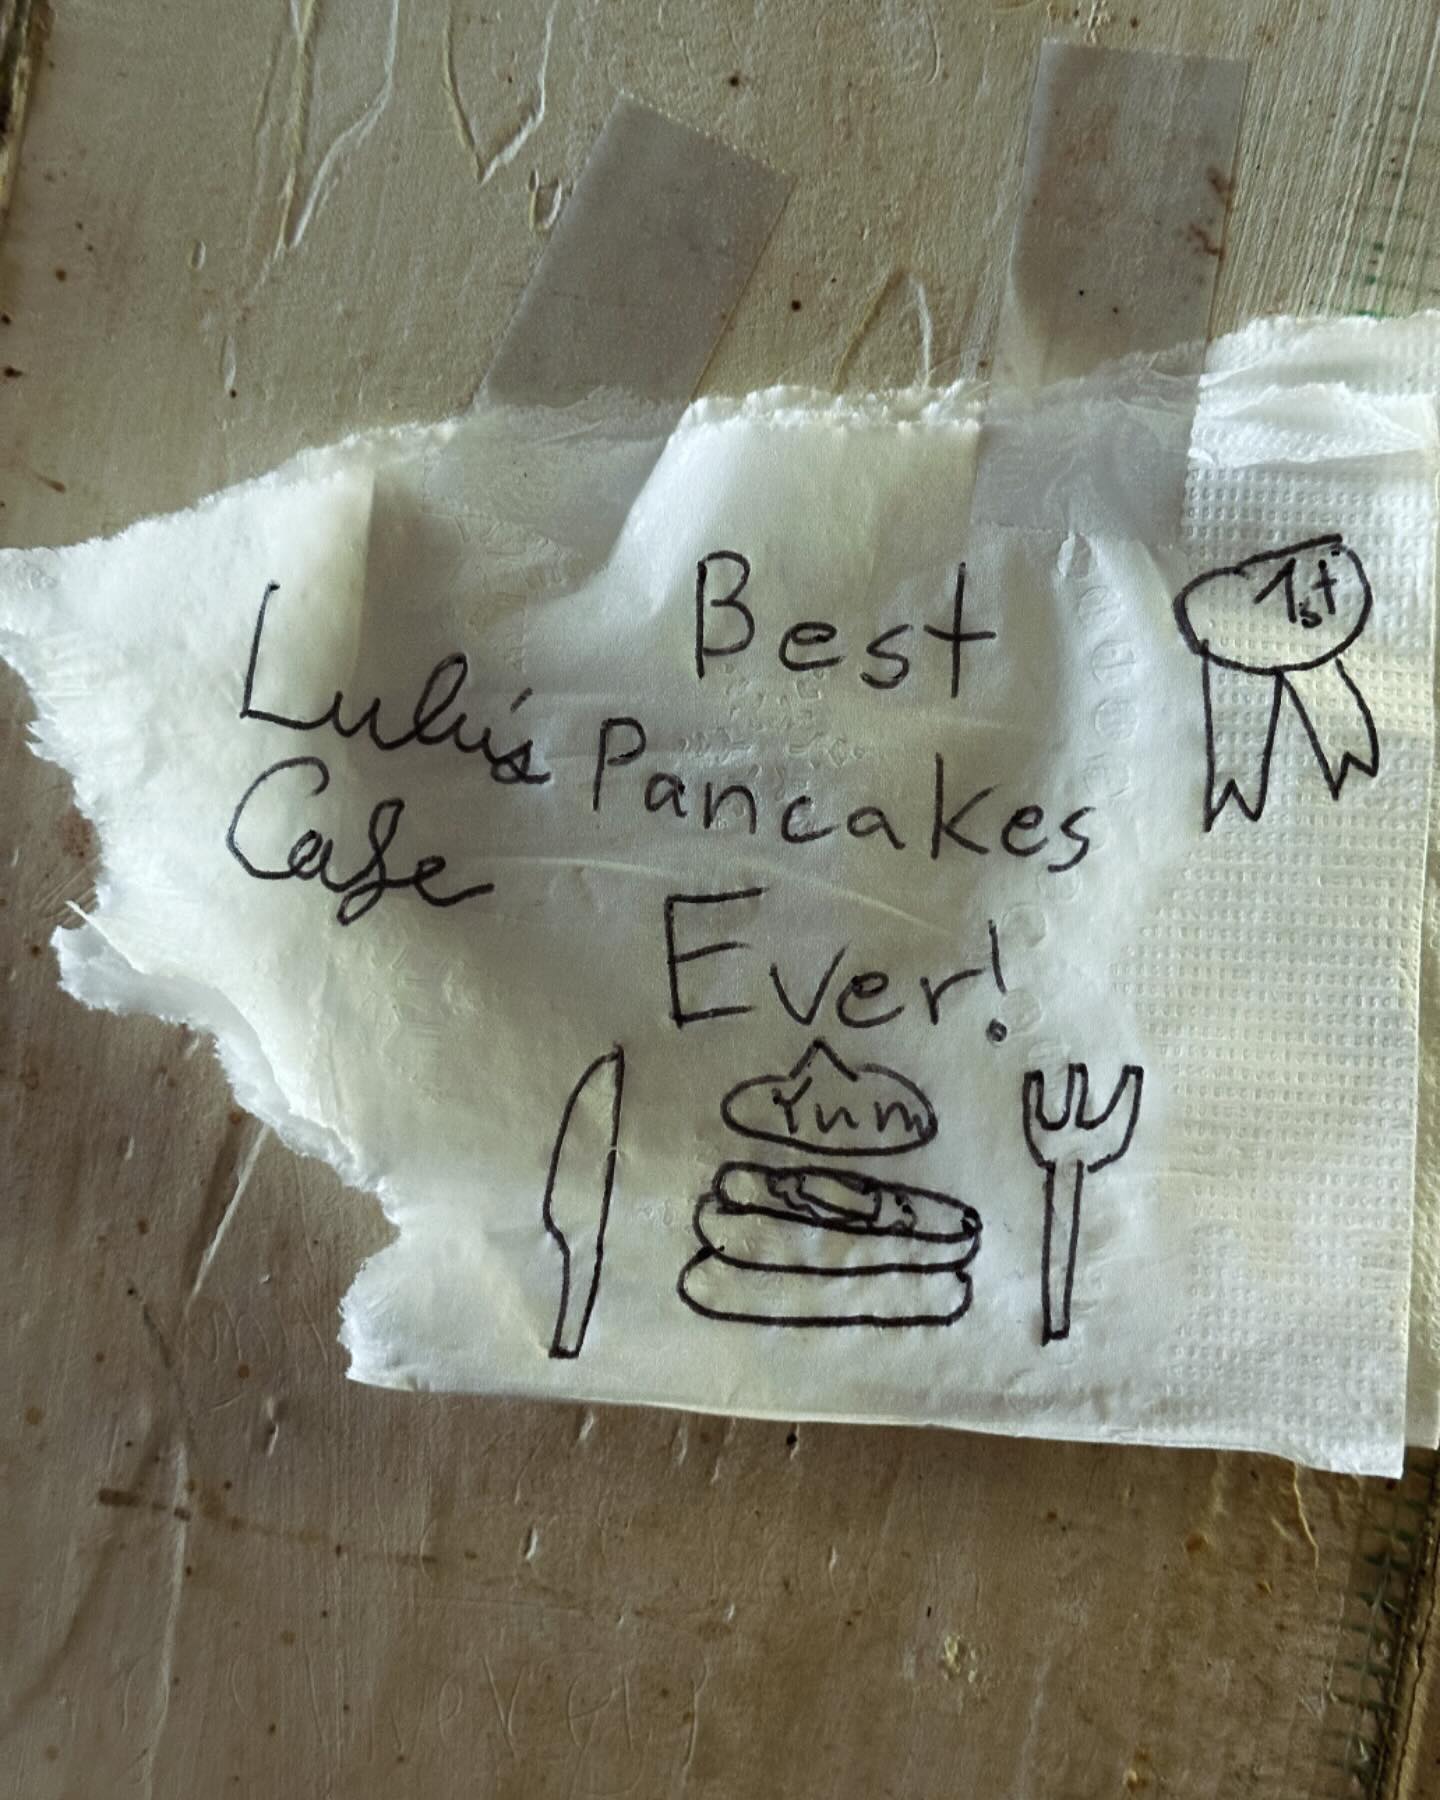 Lulu's
Cafe
Best
Pancakes
Ever!
1st
Yum